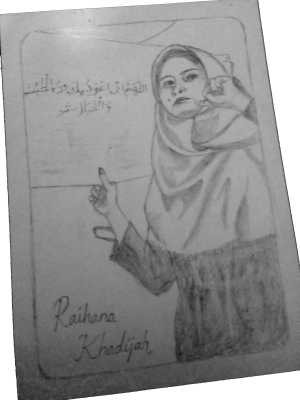 اَللّٰهُمَّ اِنِّيْ اَعُوْذُبِكَ مِنَ الْخُبُثِ
وَالْخَبَائِثِ
Raihana
Khadijah